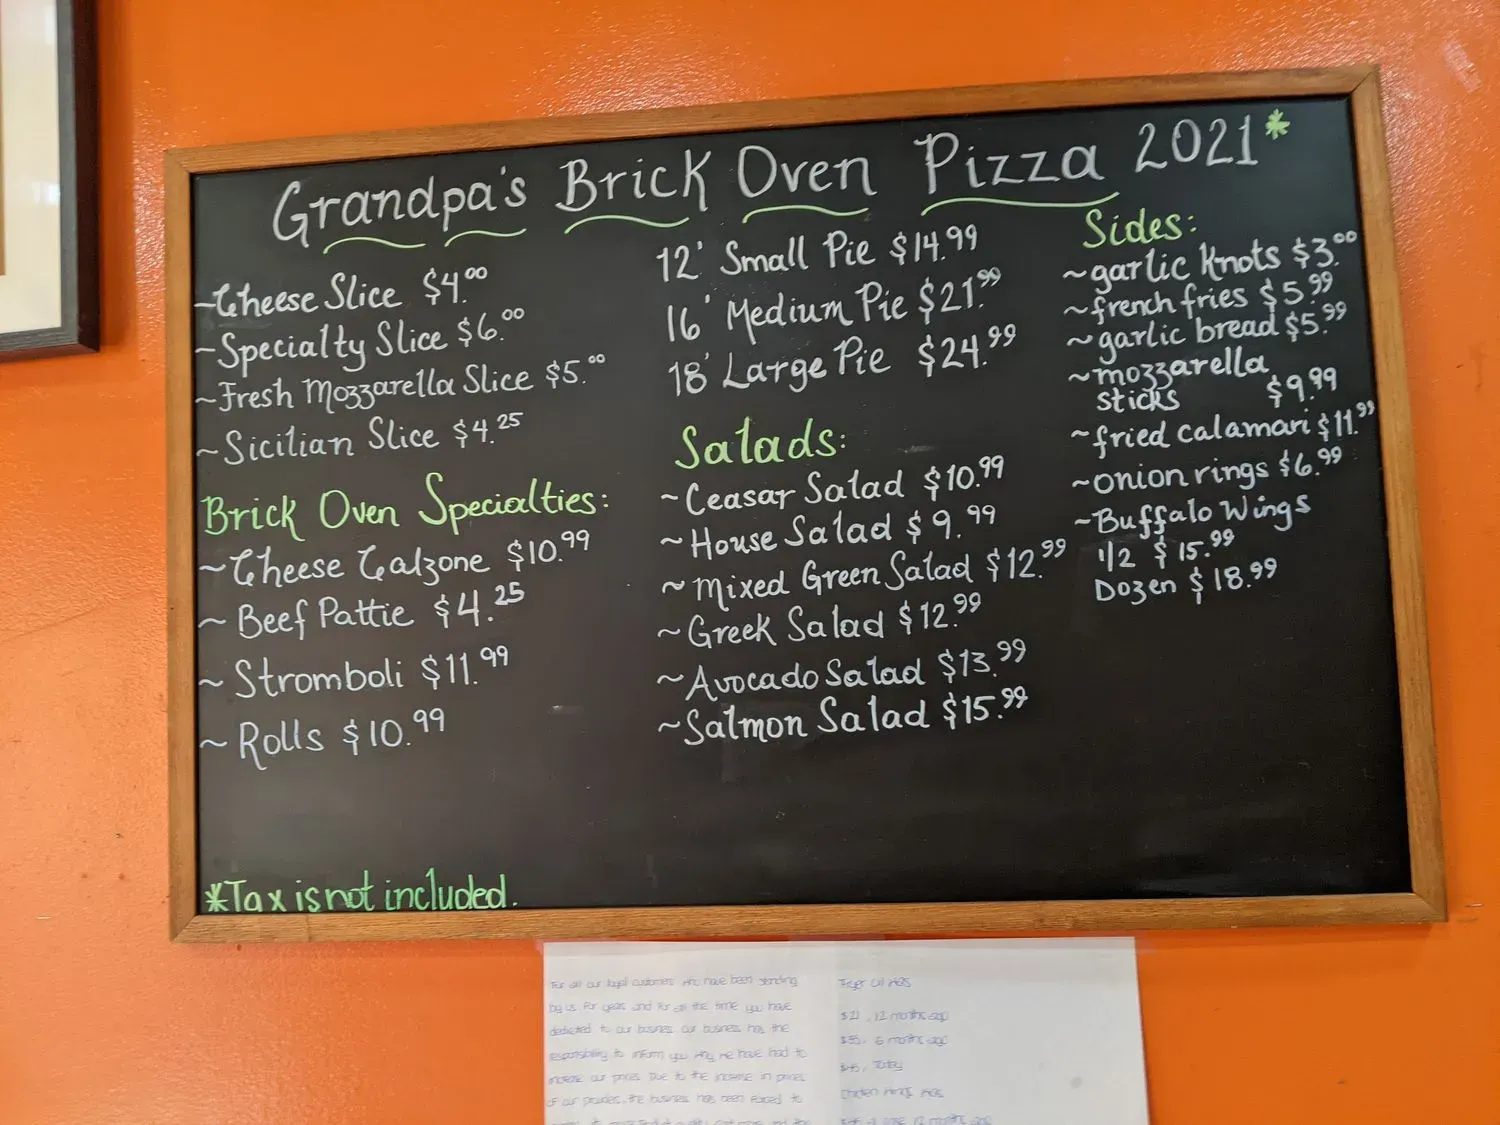 Grandpa's Brick Oven Pizza 2021*
~Cheese Slice $4.00
~Specialty Slice $6.00
~Fresh Mozzarella Slice $5.00
~Sicilian Slice $4.25
Brick Oven Specialties:
~Cheese Calzone $10.99
~Beef Pattie $4.25
~Stromboli $11.99
~Rolls $10.99
*Tax is not included.
12' Small Pie $14.99
16' Medium Pie $21.99
18' Large Pie $24.99
Salads:
~Ceasar Salad $10.99
~House Salad $9.99
~Mixed Green Salad $12.99
~Greek Salad $12.99
~Avocado Salad $13.99
~Salmon Salad $15.99
Sides:
~garlic knots $3.00
~french fries $5.99
~garlic bread $5.99
~mozzarella
sticks $9.99
~fried calamari $11.99
~onion rings $6.99
~Buffalo Wings
1/2 $15.99
Dozen $18.99
For all our loyal customers who have been standing
by us for years and for all the time you have
dedicated to our business our business has the
responsibility to inform you why we have had to
increase our prices. Due to the increase in prices
of our provides, the business has been forced to
Fryer Oil was
$21, 12 months ago
6 months ago
Today
Chicken wings was
12 months ago